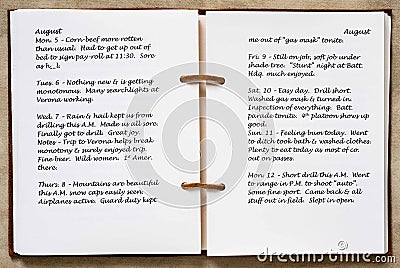 August
Mon. 5 - Corn-beef more rotten
than usual. Had to get up out of
bed to sign pay-roll at 11:30. Sore
as h_l.
Tues. 6 - Nothing new & is getting
monotonous. Many searchlights at
Verona working.
Wed. 7 - Rain & hail kept us from
drilling this A.M. Made us all sore.
Finally got to drill. Great joy.
Notes - Trip to Verona helps break
monotony & surely enjoyed trip.
Fine beer. Wild women. 1st Amer.
there.
Thurs. 8 - Mountains are beautiful
this A.M. snow caps easily seen.
Airplanes active. Guard duty kept
August
me out of "gas mask" tonite.
Fri. 9 - Still on job, soft job under
shade tree. "Stunt" night at Batt.
Hdq. much enjoyed.
Sat. 10 - Easy day. Drill short.
Washed gas mask & turned in.
Inspection of everything. Batt.
parade tonite. 4th platoon shows up
good.
Sun. 11 - Feeling bum today. Went
to ditch took bath & washed clothes.
Plenty to eat today as most of co.
out on passes.
Mon. 12 - Short drill this A.M. Went
to range in P.M. to shoot "auto".
Some fine sport. Came back & all
stuff out in field. Slept in open.